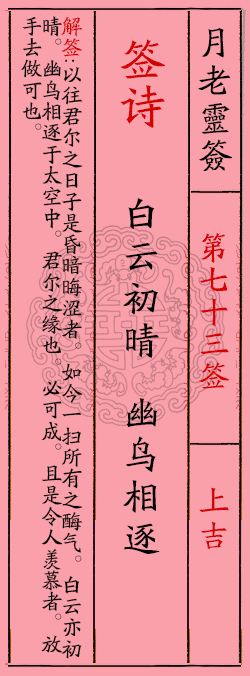 月老靈簽
第七十三签
上吉
签诗
白云初晴 幽鸟相逐
解签:以往君尔之日子是昏暗晦涩者。如今一扫所有之酶气。白云亦初
晴。幽鸟相逐于太空中。君尔之缘也。必可成。且是令人羡慕者。放
手去做可也。